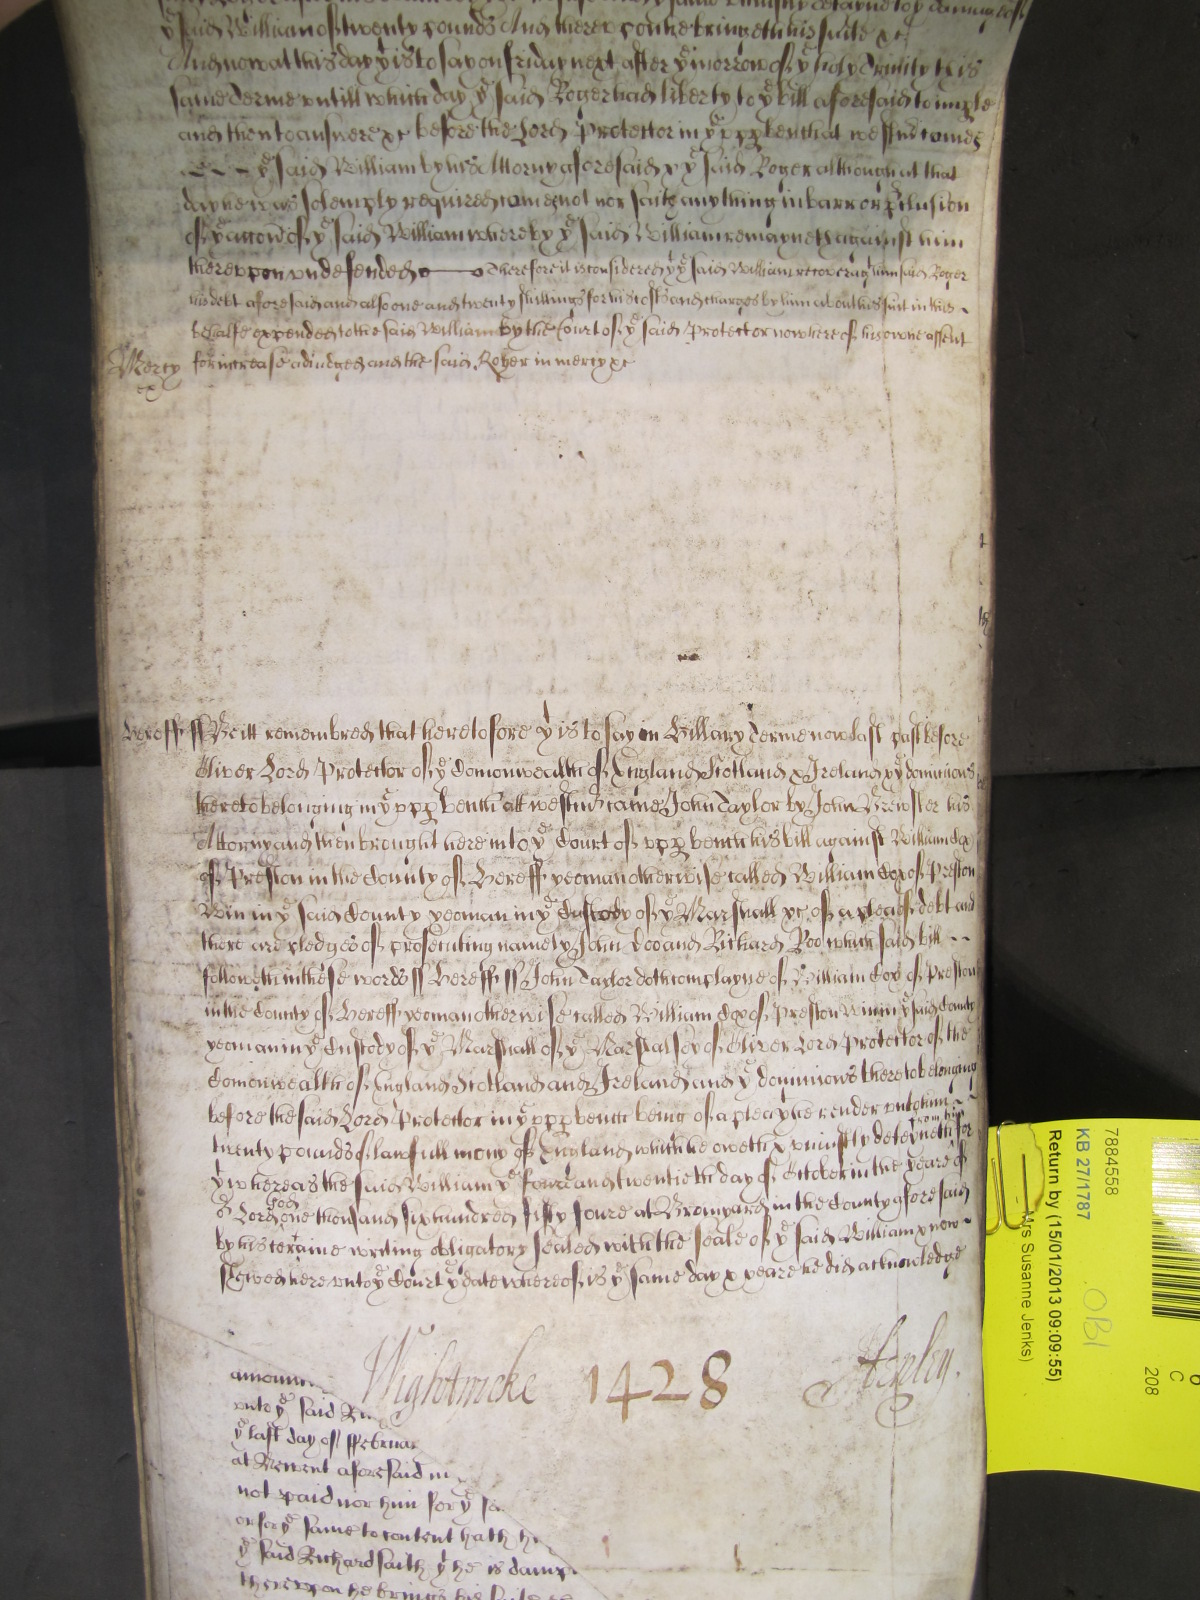 y said William of twenty pounds And thereuppon he bringeth his suite &c
And now at this day yt is to say on friday next after ye morrow of ye holy Trinity this
same Terme untill which day ye said Roger had liberty to ye bill aforesaid to imple
and then to answere &c before the Lord Protector in ye upp bench at Westm comes
ye said William by his Attorny aforesaid & ye said Roger although at that
day he was solemply required comes not nor saith anything in barr or pclusion
of ye accon of ye said William whereby ye said William remayneth against him
thereuppon undefended Therefore it is considered yt ye said William recover agt him said Roger
his debt aforesaid and also one and twenty shillings for his costs and charges by him about his suit in this
behalfe expended to the said William by the Court of ye said Protector now here of his owne assent
for increase adiudged and the said Roger in mercy &c
Mercy
&c
Hereff ss Be itt remembred that heretofore yt is to say in Hillary Terme now last past before
Oliver Lord Protector of ye Comonwealth of England Scotland & Ireland & ye dominions
thereto belonging in ye upp bench att Westm came John Taylor by John Brewster his
Attorny and then brought here into ye Court of upp bench his bill against William Cox
of Preston in the County of Hereff yeoman otherwise called William Cox of Preston
Win in ye said County yeoman in ye Custody of ye Marshall &c of a plea of debt and
there are pledges of prosecuting namely John Doo and Richard Roo which said bill
followeth in these words ss Hereff ss John Taylor doth complayne of William Cox of Preston
in the County of Hereff yeoman otherwise called William Cox of Preston Win in ye said County
yeoman in ye Custody of ye Marshall of ye Marshalsey of Oliver Lord Protector of the
Comonwealth of England Scotland and Ireland and ye dominions thereto belonging
before the said Lord Protector in ye upp bench being of a plea yt he render unto him
twenty pounds of lawfull mony of England which he oweth & uniustly deteyneth from him for
yt whereas the said William ye four and twentieth day of October in the yeare of
or Lord god one thousand six hundred fifty foure at Bromyard in the County aforesaid
by his certaine writing obligatory sealed with the seale of ye said William & now
shewed here unto ye Court ye date whereof is ye same day & yeare he did acknowledge
Wightwicke 1428 Henley.
unto ye said
ye last day of ffebruar
at Newent aforesaid in
not paid nor him for ye sa
or for ye same to content hath h
ye said Richard saith yt he is dam
thereupon he brings his suite
7884558
KB 27/1787
Return by (15/01/2013 09:09:55)
Mrs Susanne Jenks)
OBI
C
208